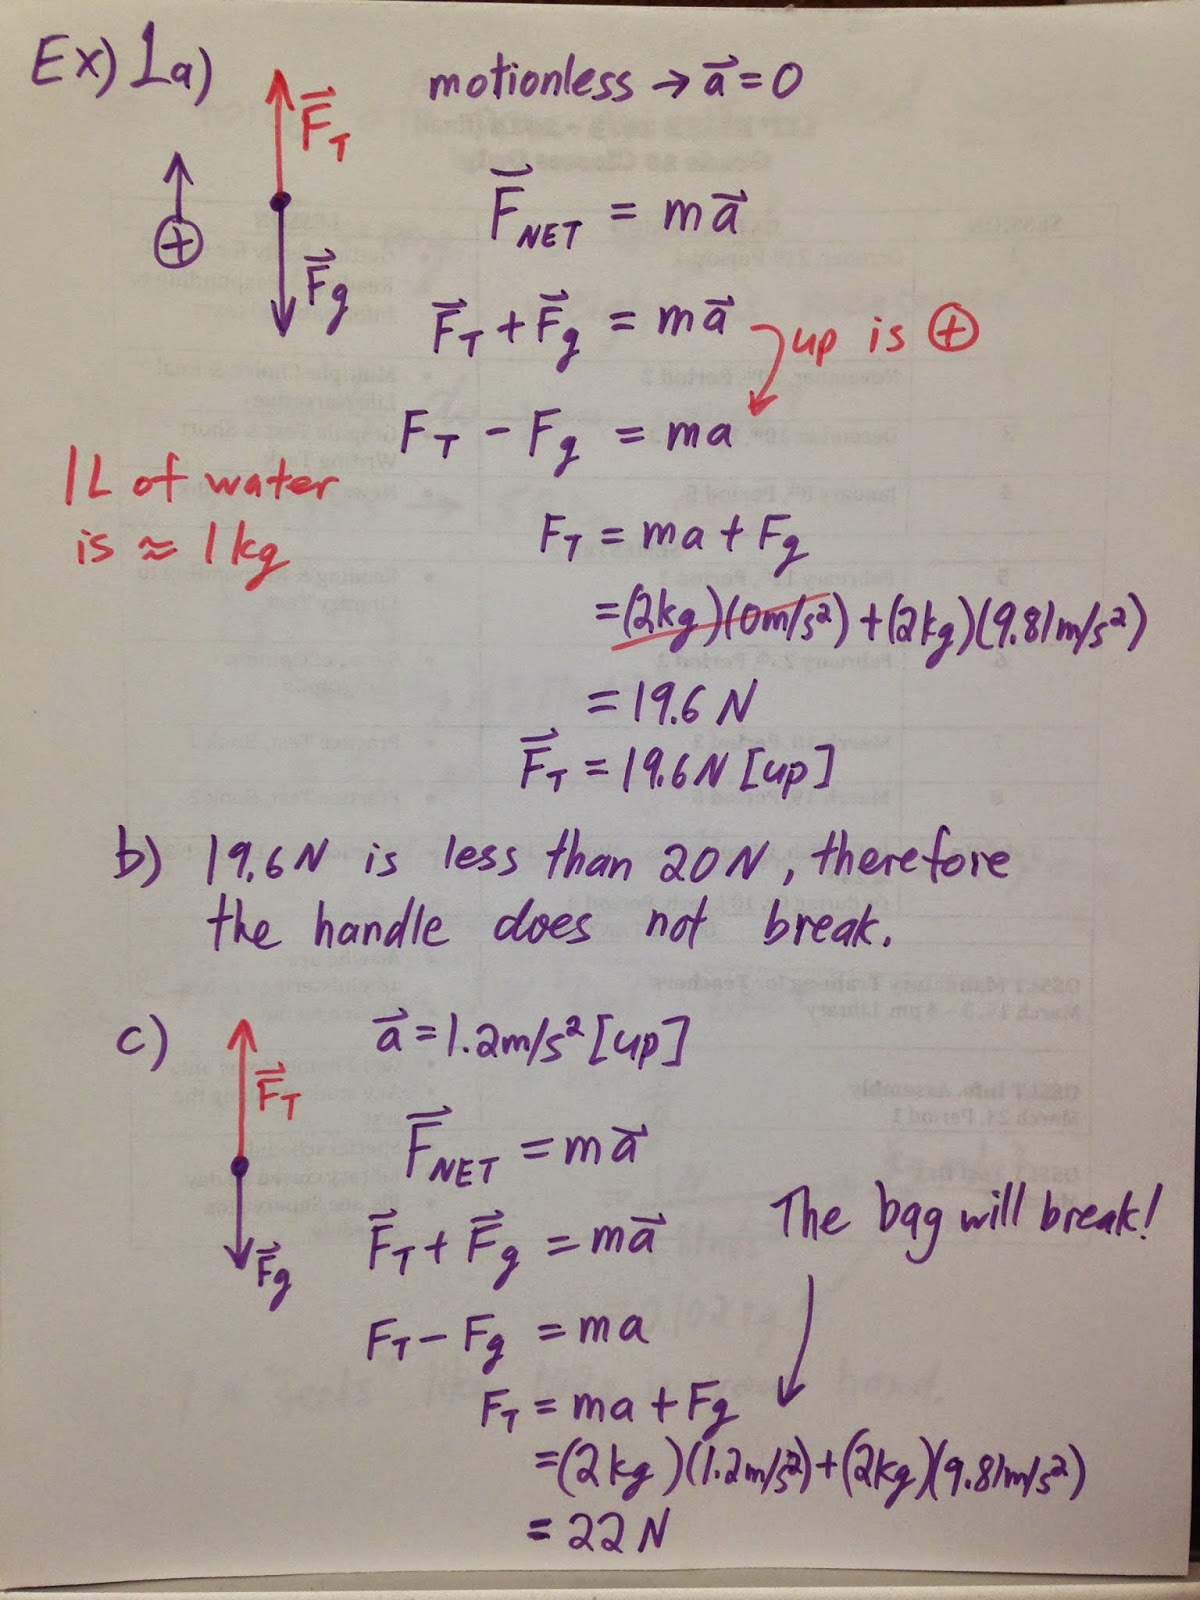 Ex) 1a)
motionless → a⃗ = 0
F⃗_T
⊕
F⃗_g
F⃗_NET = ma⃗
F⃗_T + F⃗_g = ma⃗
up is ⊕
F_T - F_g = ma
1L of water
is ≈ 1kg
F_T = ma + F_g
= (2kg)(0m/s²) + (2kg)(9.81m/s²)
= 19.6 N
F⃗_T = 19.6N [up]
b) 19.6N is less than 20N, therefore
the handle does not break.
c)
a⃗ = 1.2m/s² [up]
F⃗_T
F⃗_g
F⃗_NET = ma⃗
F⃗_T + F⃗_g = ma⃗
The bag will break!
F_T - F_g = ma
F_T = ma + F_g
= (2kg)(1.2m/s²) + (2kg)(9.81m/s²)
= 22 N